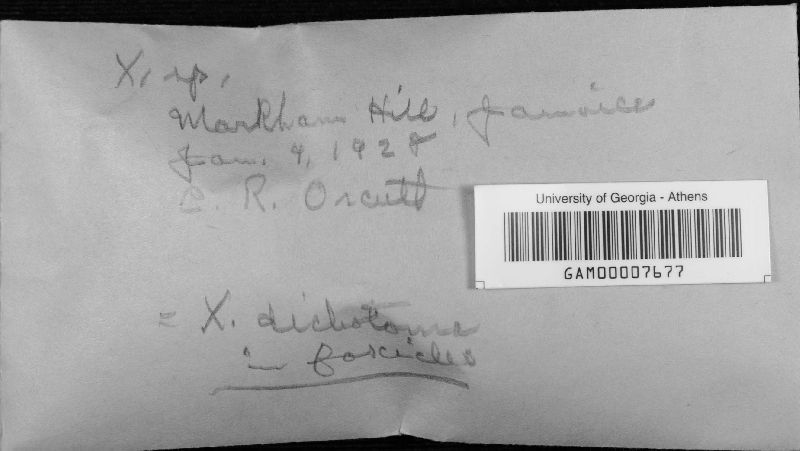 X. sp.
Markham Hill, Jamaica
Jan. 4, 1928
C. R. Orcutt
University of Georgia - Athens
GAM00007677
= X. dichotoma
in fascicles